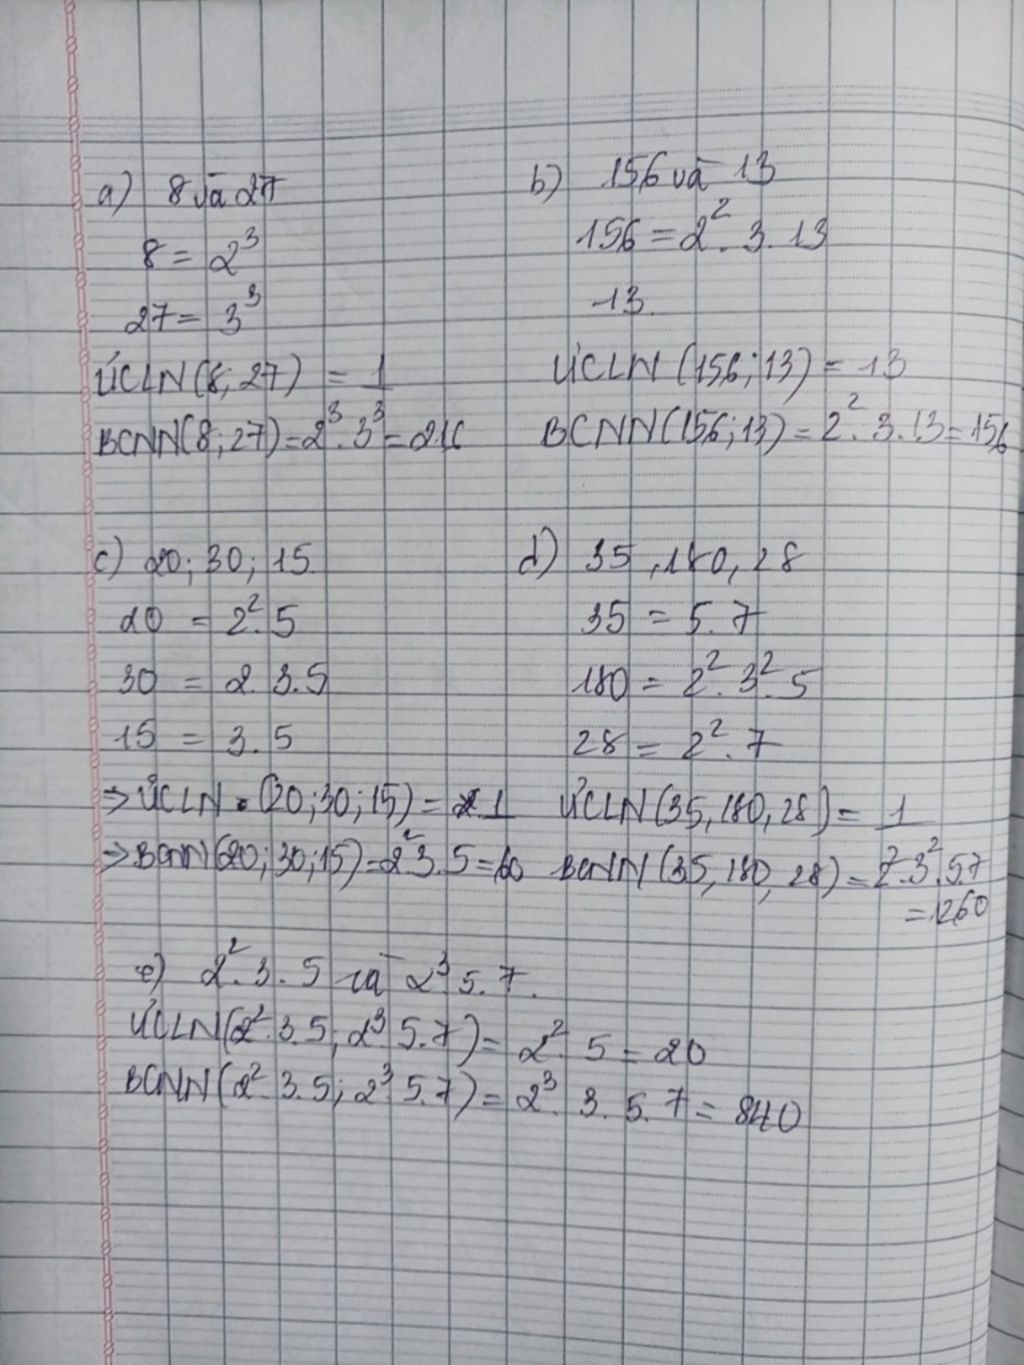 a) 8 và 27
8 = 2³
27 = 3³
ƯCLN(8; 27) = 1
BCNN(8; 27) = 2³. 3³ = 216
b) 156 và 13
156 = 2². 3. 13
13.
ƯCLN (156; 13) = 13
BCNN(156; 13) = 2². 3. 13 = 156
c) 20; 30; 15
20 = 2². 5
30 = 2. 3. 5
15 = 3. 5
=> ƯCLN (20; 30; 15) = 1
=> BCNN(20; 30; 15) = 2² 3. 5 = 60
d) 35, 180, 28
35 = 5. 7
180 = 2². 3². 5
28 = 2². 7
ƯCLN(35, 180, 28) = 1
BCNN (35, 180, 28) = 2². 3². 5.7
= 1260
e) 2². 3. 5 và 2³ 5. 7.
ƯCLN(2². 3. 5; 2³. 5. 7) = 2². 5 = 20
BCNN(2². 3. 5; 2³. 5. 7) = 2³. 3. 5. 7 = 840